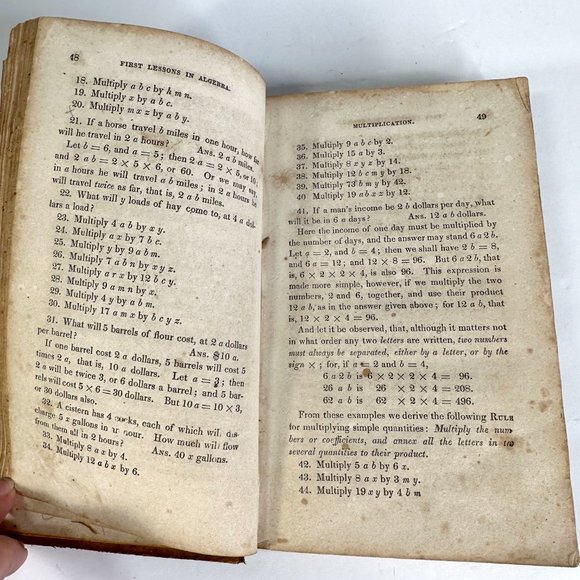 48
FIRST LESSONS IN ALGEBRA.
18. Multiply a b c by h m n.
19. Multiply x by a b c.
20. Multiply m x z by a b y.
21. If a horse travel b miles in one hour, how far
will he travel in 2 a hours? Ans. 2 a b miles.
Let b = 6, and a = 5; then 2 a = 2 × 5, or 10;
and 2 a b = 2 × 5 × 6, or 60. Or we may say,
in a hours he will travel a b miles; in 2 a hours he
will travel twice as far, that is, 2 a b miles.
22. What will y loads of hay come to, at 4 a dol-
lars a load?
23. Multiply 4 a b by x y.
24. Multiply a x by 7 b c.
25. Multiply y by 9 a b m.
26. Multiply 7 a b n by x y z.
27. Multiply a r x by 12 b c y.
28. Multiply 9 a m n by x.
29. Multiply 4 y by a b m.
30. Multiply 17 a m x by b c y z.
31. What will 5 barrels of flour cost, at 2 a dollars
per barrel? Ans. $10 a.
If one barrel cost 2 a dollars, 5 barrels will cost 5
times 2 a, that is, 10 a dollars. Let a = 3; then
2 a will be twice 3, or 6 dollars a barrel; and 5 bar-
rels will cost 5 × 6 = 30 dollars. But 10 a = 10 × 3,
or 30 dollars also.
32. A cistern has 4 cocks, each of which will dis-
charge 5 x gallons in an hour. How much will flow
from them all in 2 hours? Ans. 40 x gallons.
33. Multiply 8 a x by 4.
34. Multiply 12 a b x by 6.
MULTIPLICATION.
49
35. Multiply 9 a b c by 2.
36. Multiply 15 a by 3.
37. Multiply 8 x y z by 14.
38. Multiply 12 b c m y by 18.
39. Multiply 73 b m y by 42.
40. Multiply 19 a b x z by 12.
41. If a man's income be 2 b dollars per day, what
will it be in 6 a days? Ans. 12 a b dollars.
Here the income of one day must be multiplied by
the number of days, and the answer may stand 6 a 2 b.
Let a = 2, and b = 4; then we shall have 2 b = 8,
and 6 a = 12; and 12 × 8 = 96. But 6 a 2 b, that
is, 6 × 2 × 2 × 4, is also 96. This expression is
made more simple, however, if we multiply the two
numbers, 2 and 6, together, and use their product
12 a b, as in the answer above given; for 12 a b, that
is, 12 × 2 × 4 = 96.
And let it be observed, that, although it matters not
in what order any two letters are written, two numbers
must always be separated, either by a letter, or by the
sign ×; for, if a = 2 and b = 4,
6 a 2 b is 6 × 2 × 2 × 4 = 96.
26 a b is 26 × 2 × 4 = 208.
62 a b is 62 × 2 × 4 = 496.
From these examples we derive the following RULE
for multiplying simple quantities: Multiply the num
bers or coefficients, and annex all the letters in the
several quantities to their product.
42. Multiply 5 a b by 6 x.
43. Multiply 8 a x by 3 m y.
44. Multiply 19 x y by 4 b m